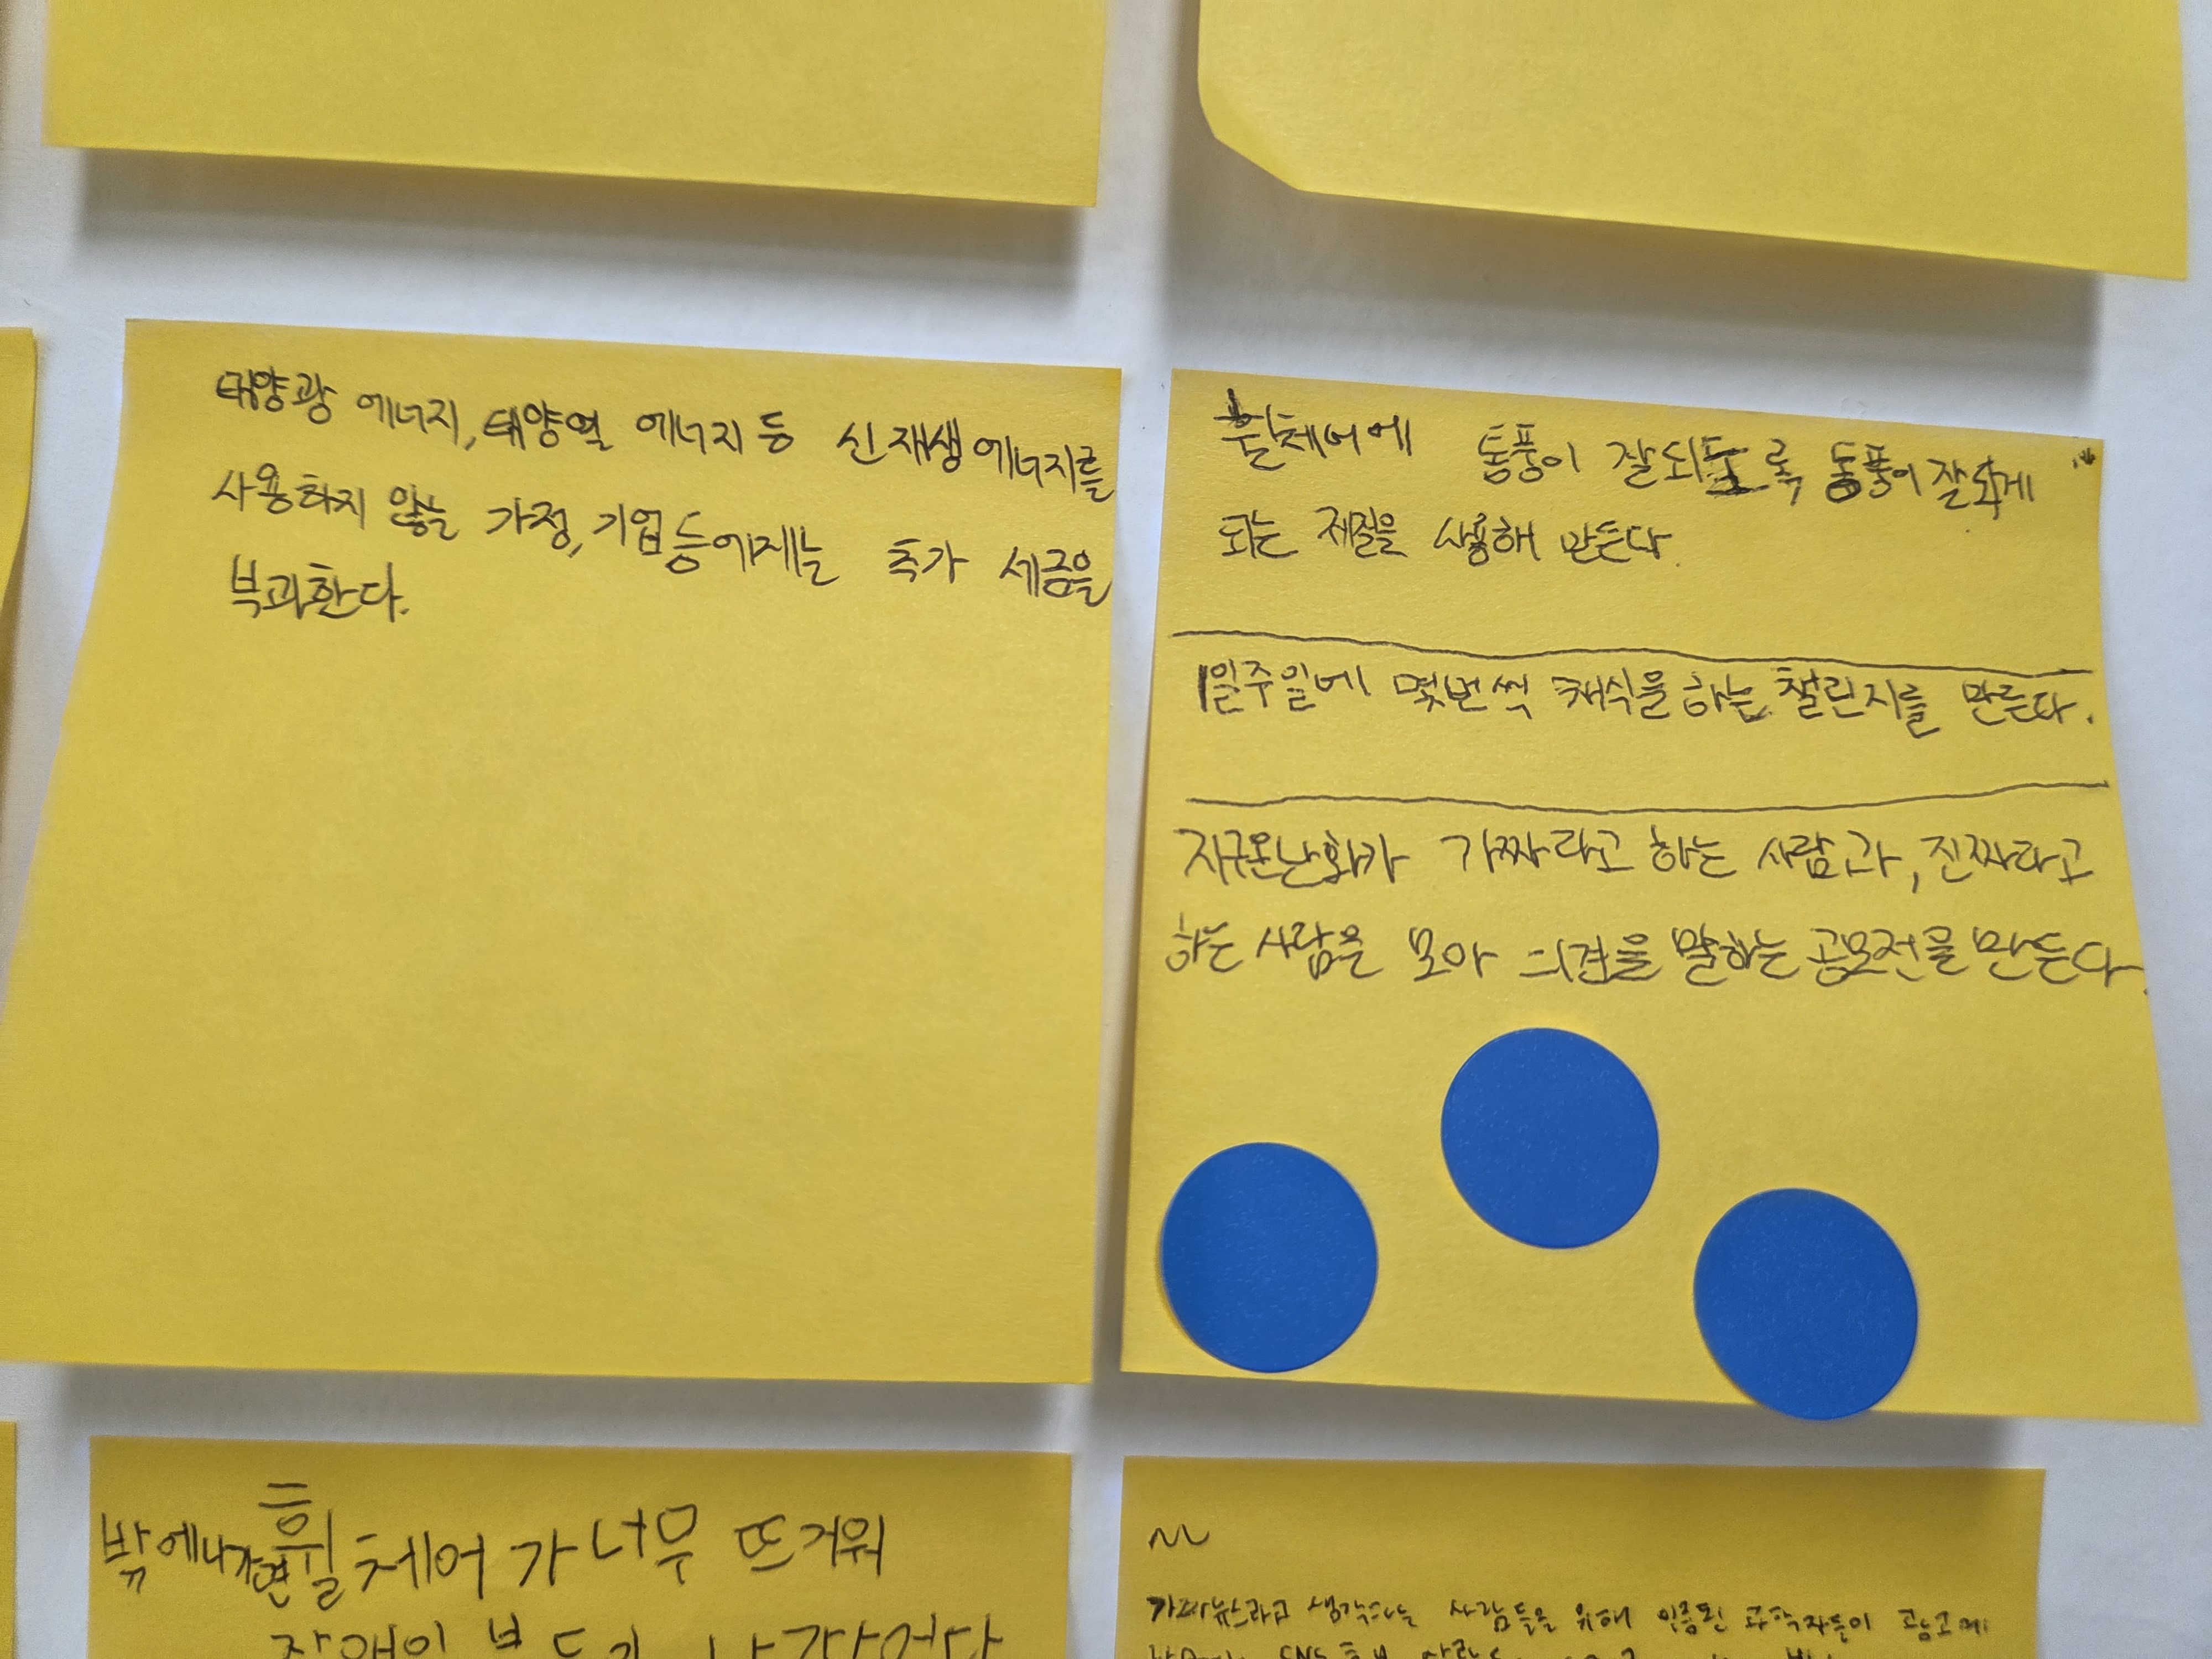 태양광 에너지, 태양열 에너지 등 신재생에너지를
사용하지 않는 가정, 기업 등에게는 추가 세금을
부과한다.
휠체어에 통풍이 잘되도록 통풍이 잘되게
되는 재질을 사용해 만든다.
1일주일에 몇번씩 채식을 하는 챌린지를 만든다.
지구온난화가 가짜라고 하는 사람과, 진짜라고
하는 사람을 모아 의견을 말하는 공모전을 만든다.
밖에나가면 휠체어가 너무 뜨거워
가짜뉴스라고 생각하는 사람들을 위해 인증된 과학자들이 광고에